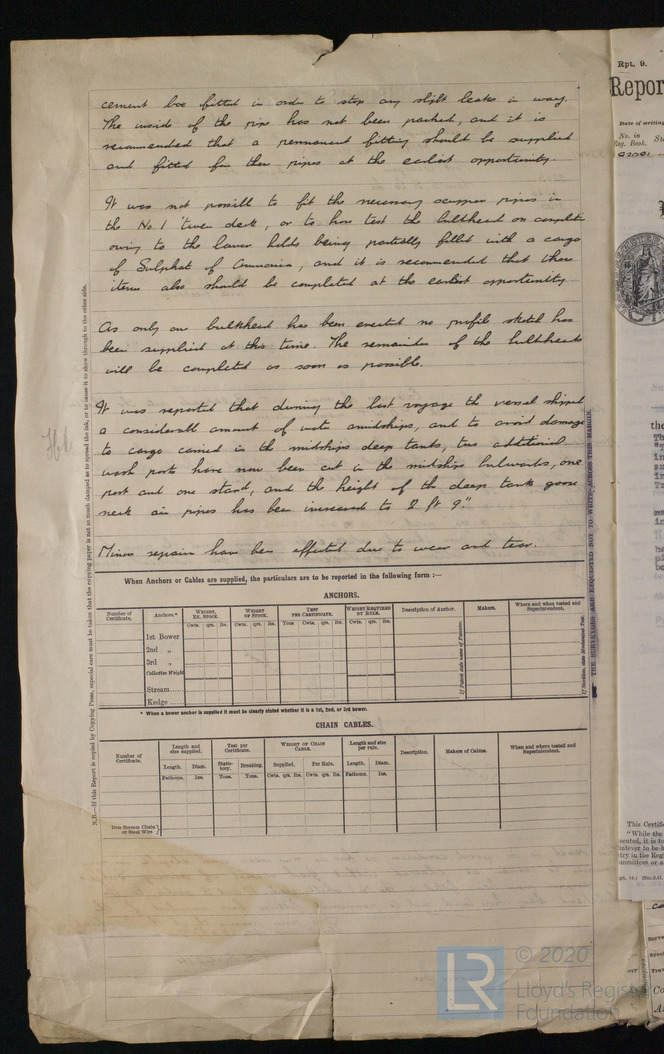 cement box fitted in order to stop any slight leaks in way.
The inside of the pipe has not been packed, and it is
recommended that a permanent fitting should be supplied
and fitted for these pipes at the earliest opportunity.
It was not possible to fit the necessary scupper pipes in
the No. 1 'tween deck, or to hose test the bulkhead on completion
owing to the lower holds being partially filled with a cargo
of Sulphate of Ammonia, and it is recommended that these
items also should be completed at the earliest opportunity
As only one bulkhead has been erected no profile sketch has
been supplied at this time. The remainder of the bulkheads
will be completed as soon as possible.
It was reported that during the last voyage the vessel shipped
a considerable amount of water amidships, and to avoid damage
to cargo carried in the midships deep tanks, two additional
wash ports have now been cut in the midship bulwarks, one
port and one starbd, and the height of the deep tank goose
neck air pipes has been increased to 2 ft 9".
Minor repairs have been effected due to wear and tear.
When Anchors or Cables are supplied, the particulars are to be reported in the following form :—
ANCHORS.
Number of Certificate. Anchors.* WEIGHT, EX. STOCK. WEIGHT OF STOCK. TEST PER CERTIFICATE. WEIGHT REQUIRED BY RULE. Description of Anchor. Makers. Where and when tested and Superintendent.
Cwts. qrs. lbs. Cwts. qrs. lbs. Tons Cwt. qrs. lbs. Cwts. qrs. lbs.
1st Bower
2nd „
3rd „
Collective Weight
Stream
Kedge
* When a bower anchor is supplied it must be clearly stated whether it is a 1st, 2nd, or 3rd bower.
CHAIN CABLES.
Number of Certificate. Length and size supplied. Test per Certificate. WEIGHT OF CHAIN CABLE. Length and size per rule. Description. Makers of Cables. When and where tested and Superintendent.
Length. Diam. Statutory. Breaking. Supplied. Per Rule. Length. Diam.
Fathoms. Ins. Tons. Tons. Cwts. qrs. lbs. Cwts. qrs. lbs. Fathoms. Ins.
Iron Stream Chain or Steel Wire
N.B.—If this Report is copied by Copying Press, especial care must be taken that the copying paper is not so much damped as to spread the ink, or to cause it to show through to the other side.
THE SURVEYORS ARE REQUESTED NOT TO WRITE ACROSS THE MARGIN.
Rpt. 9.
Repor
Date of writing
No. in
Reg. Book.
This Certifi
"While the
© 2020
Lloyd's Register
Foundation
LR